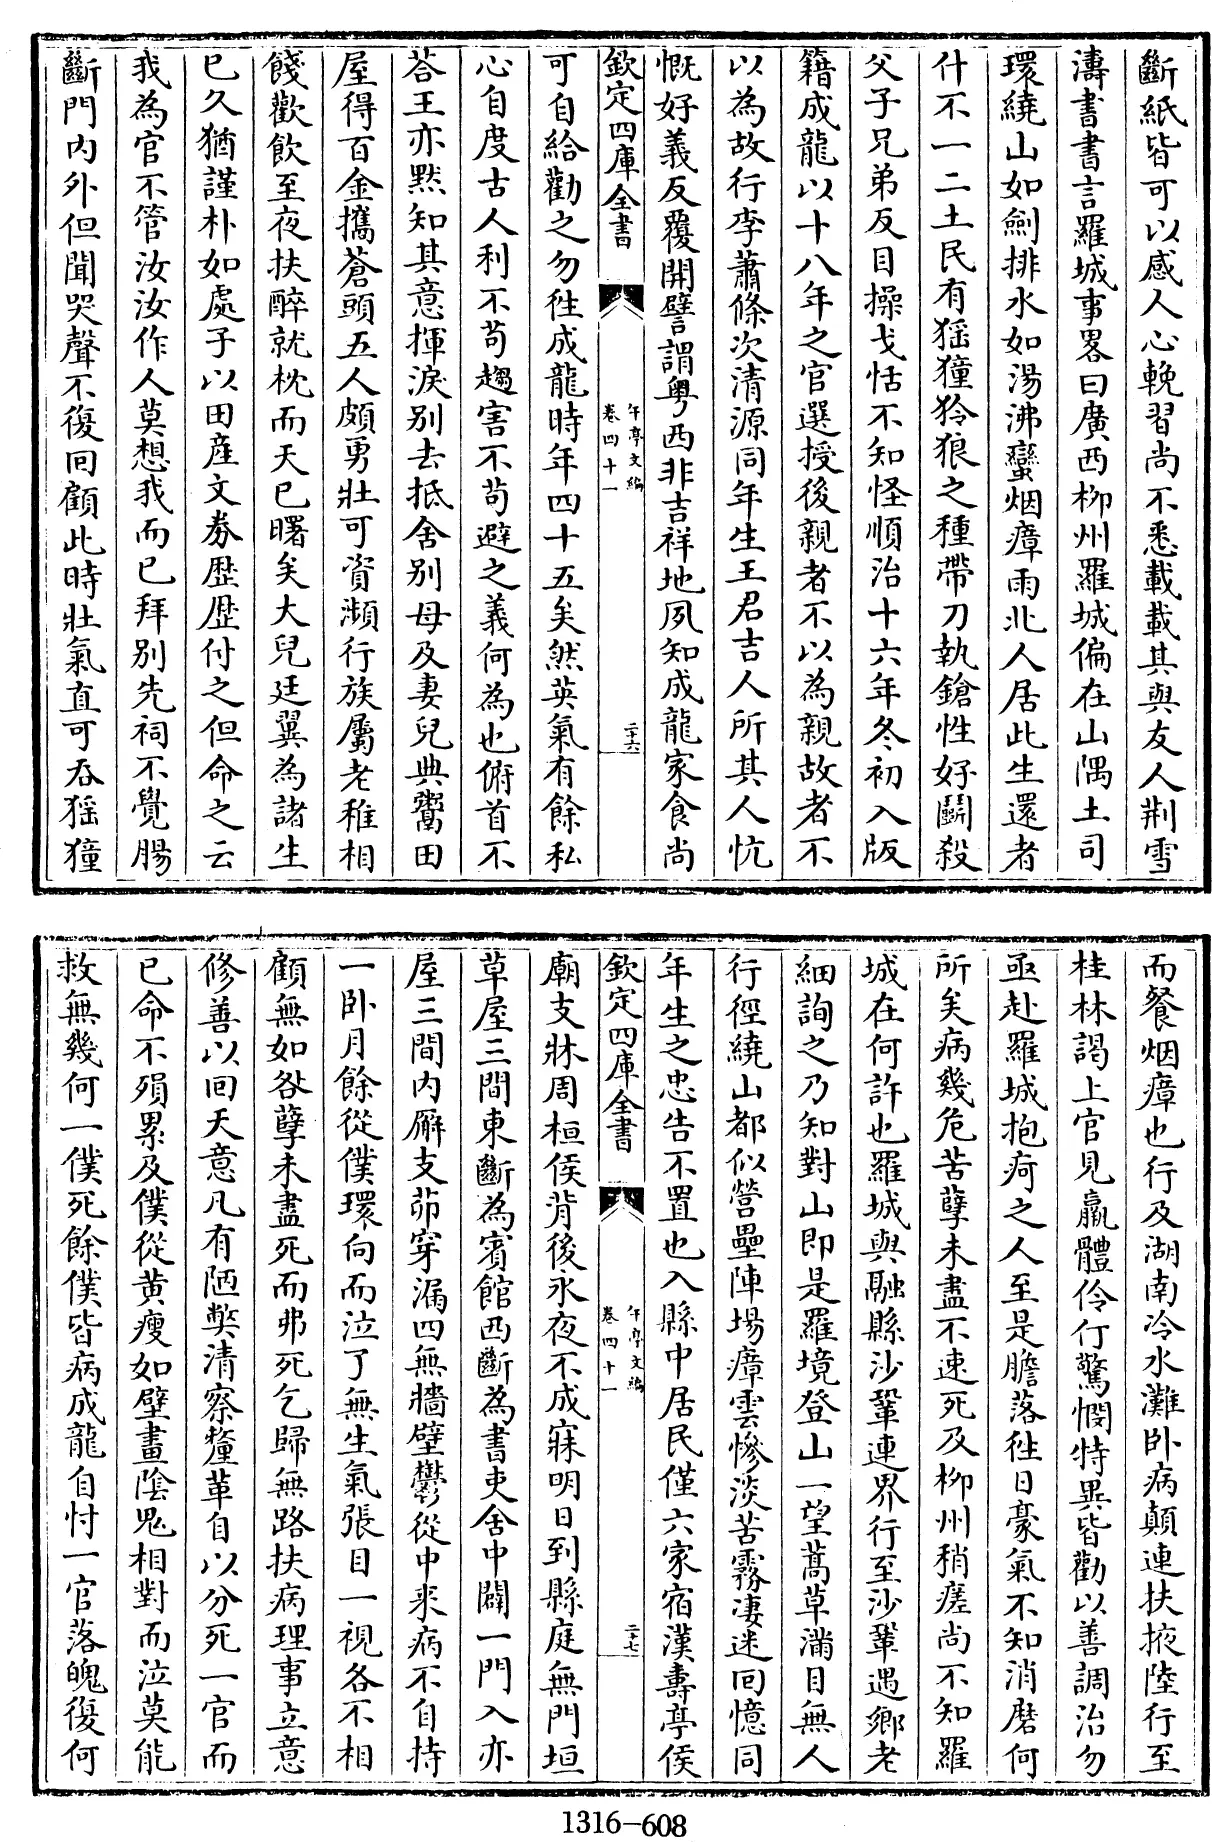 斷紙皆可以感人心輓習尚不悉載載其與友人荆雪
濤書書言羅城事畧曰廣西柳州羅城偏在山隅土司
環繞山如劍排水如湯沸蠻烟瘴雨北人居此生還者
什不一二土民有猺獞狑狼之種帶刀執鎗性好鬭殺
父子兄弟反目操戈恬不知怪順治十六年冬初入版
籍成龍以十八年之官選授後親者不以為親故者不
以為故行李蕭條次清源同年生王君吉人所其人忼
慨好義反覆開譬謂粤西非吉祥地夙知成龍家食尚
欽定四庫全書
午亭文編
卷四十一
二十六
可自給勸之勿徃成龍時年四十五矣然英氣有餘私
心自度古人利不苟趨害不苟避之義何為也俯首不
荅王亦黙知其意揮淚别去抵舍别母及妻兒典鬻田
屋得百金攜蒼頭五人頗勇壯可資瀕行族屬老稚相
餞歡飲至夜扶醉就枕而天已曙矣大兒廷翼為諸生
已久猶謹朴如處子以田産文券歴歴付之但命之云
我為官不管汝汝作人莫想我而已拜别先祠不覺腸
斷門内外但聞哭聲不復回顧此時壯氣直可吞猺獞
而餐烟瘴也行及湖南冷水灘卧病顛連扶掖陸行至
桂林謁上官見羸體伶仃驚憫特異皆勸以善調治勿
亟赴羅城抱疴之人至是膽落徃日豪氣不知消磨何
所矣病幾危苦孽未盡不速死及柳州稍瘥尚不知羅
城在何許也羅城與融縣沙鞏連界行至沙鞏遇鄉老
細詢之乃知對山即是羅境登山一望蒿草滿目無人
行徑繞山都似營壘陣場瘴雲慘淡苦霧凄迷回憶同
年生之忠告不置也入縣中居民僅六家宿漢壽亭侯
欽定四庫全書
午亭文編
卷四十一
二十七
廟支牀周桓侯背後永夜不成寐明日到縣庭無門垣
草屋三間東斷為賓館西斷為書吏舍中闢一門入亦
屋三間内廨支茆穿漏四無牆壁鬱從中来病不自持
一卧月餘從僕環向而泣了無生氣張目一視各不相
顧無如咎孽未盡死而弗死乞歸無路扶病理事立意
修善以回天意凡有陋弊清察釐革自以分死一官而
已命不殞累及僕從黄瘦如壁畫陰鬼相對而泣莫能
救無幾何一僕死餘僕皆病成龍自忖一官落魄復何
1316-608